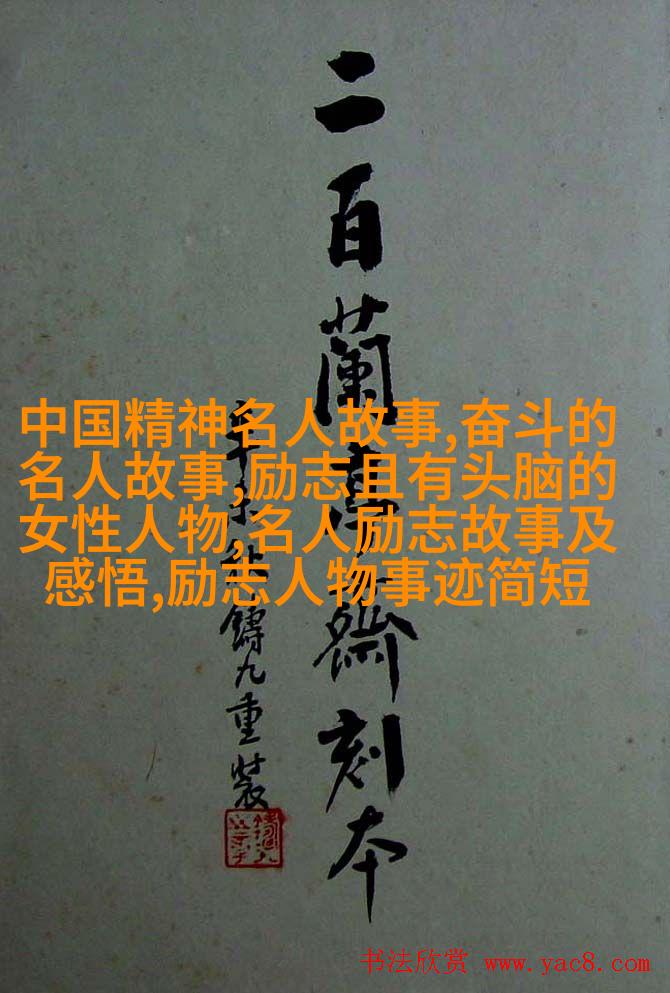 二百蘭亭齋刻本
鑄九重裝
中国精神名人故事,奋斗的
名人故事,励志且有头脑的
女性人物,名人励志故事及
感悟,励志人物事迹简短
书法欣赏 www.yac8.com